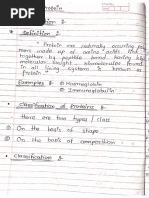 Protein
Definition :
Protein are naturally occuring polymer
made up of amino acids and
together by peptide bond having high
molecular weight, biomolecules found
in all living systems is known as
"protein".
Examples : Haemoglobin
Immunoglobulin
Classification of Proteins :
there are two types / class
① On the basis of shape
② On the basis of composition
Classification :